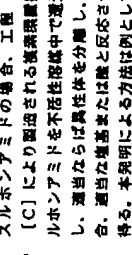 スルホンアミドの場合、工程
[C]により製造される複素環
ルホンアミドを不活性溶媒中で適
し、適当ならば異性体を分離し、
合、適当な塩基または酸と反応さ
得る。本発明による方法は例とし